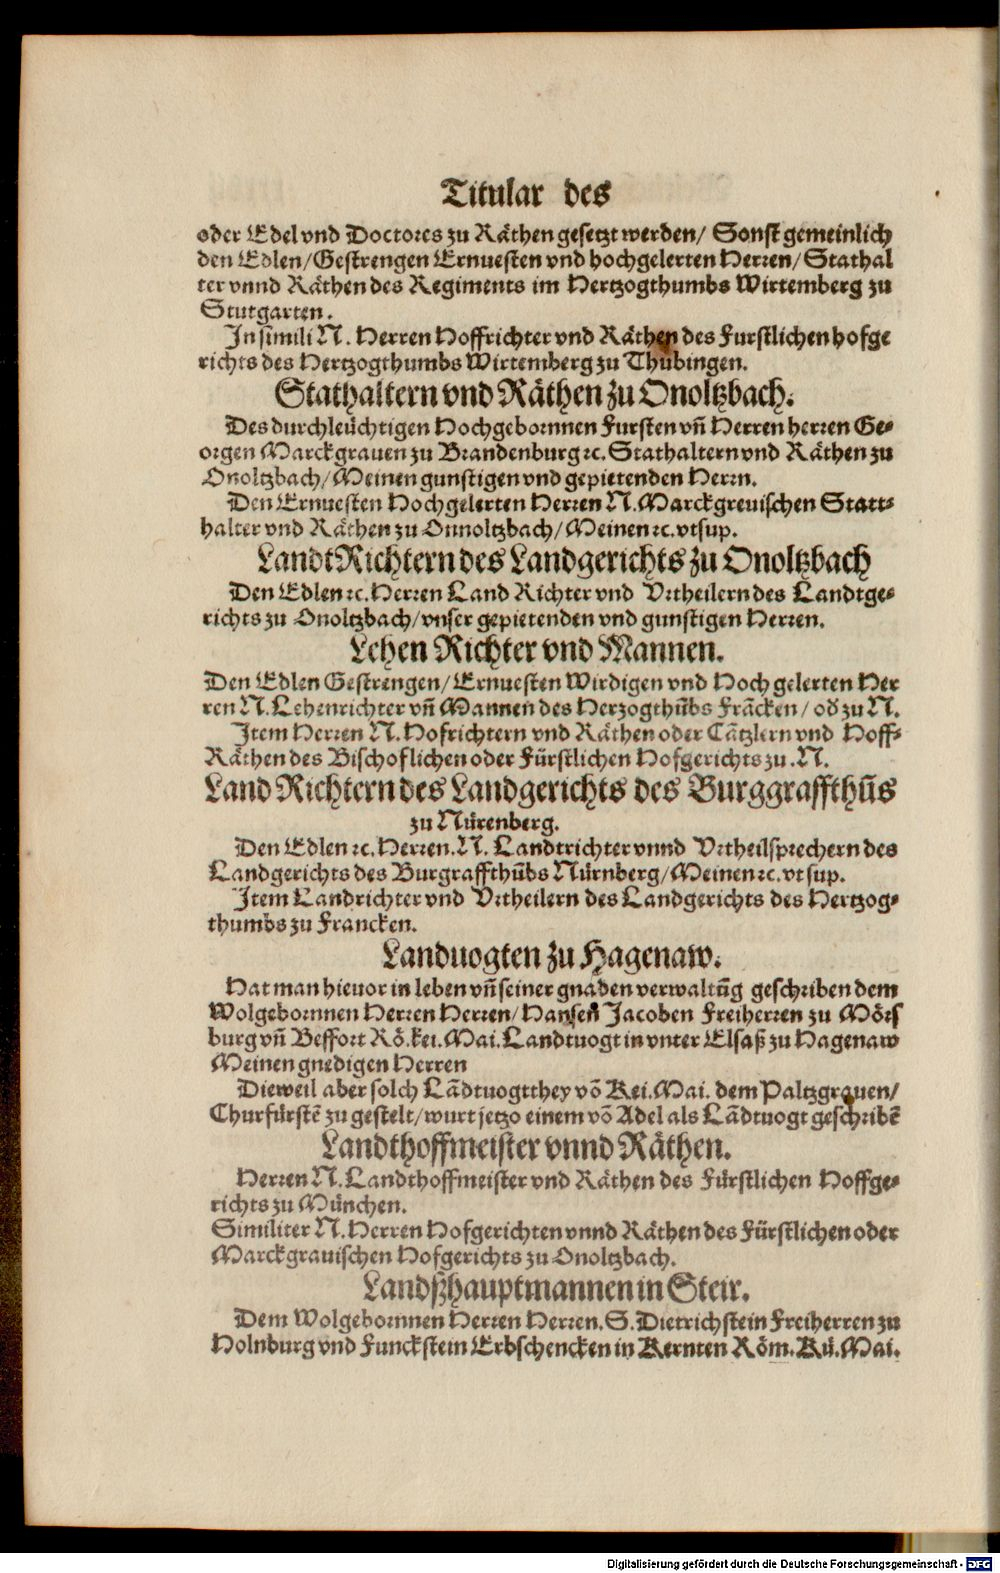 Titular des
oder Edel vnd Doctores zu Räthen gesetzt werden/ Sonst gemeinlich
den Edlen/Gestrengen Ernuesten vnd hochgelerten Herren/ Stathal
ter vnnd Räthen des Regiments im Hertzogthumbs Wirtemberg zu
Stutgarten.
In simili N. Herren Hoffrichter vnd Räthen des Furstlichen hofge
richts des Hertzogthumbs Wirtemberg zu Thubingen.
Stathaltern vnd Räthen zu Onoltzbach.
Des durchleüchtigen Hochgebornnen Fursten vñ Herren herren Ge-
orgen Marckgrauen zu Brandenburg ꝛc. Stathaltern vnd Räthen zu
Onoltzbach/ Meinen gunstigen vnd gepietenden Herrn.
Den Ernuesten Hochgelerten Herren N. Marckgreuischen Statt-
halter vnd Räthen zu Onnoltzbach/ Meinen ꝛc. vt sup.
LandtRichtern des Landgerichts zu Onoltzbach
Den Edlen ꝛc. Herren Land Richter vnd Vrtheilern des Landtge-
richts zu Onoltzbach/ vnser gepietenden vnd gunstigen Herren.
Lehen Richter vnd Mannen.
Den Edlen Gestrengen/ Ernuesten Wirdigen vnd Hoch gelerten Her
ren N. Lehenrichter vñ Mannen des Herzogthũbs Frãcken/ oď zu N.
Item Herren N. Hofrichtern vnd Räthen oder Cãtzlern vnd Hoff-
Räthen des Bischoflichen oder Fürstlichen Hofgerichts zu. N.
Land Richtern des Landgerichts des Burggraffthũs
zu Nürenberg.
Den Edlen ꝛc. Herren. N. Landtrichter vnnd Vrtheilsprechern des
Landgerichts des Burgraffthũbs Nürnberg/ Meinen ꝛc. vt sup.
Item Landrichter vnd Vrtheilern des Landgerichts des Hertzog-
thumbs zu Francken.
Landuogten zu Hagenaw.
Hat man hieuor in leben vñ seiner gnaden verwaltũg geschriben dem
Wolgebornnen Herren Herren/ Hansen Jacoben Freiherren zu Mörs
burg vñ Beffort Rö. kei. Mai. Landtuogt in vnter Elsaß zu Hagenaw
Meinen gnedigen Herren
Dieweil aber solch Lãdtuogtthey võ Kei. Mai. dem Paltzgrauen/
Churfürstẽ zu gestelt/ wurt jetzo einem võ Adel als Lãdtuogt geschribẽ
Landthoffmeister vnnd Räthen.
Herren N. Landthoffmeister vnd Räthen des Fürstlichen Hoffge-
richts zu München.
Similiter N. Herren Hofgerichten vnnd Räthen des Fürstlichen oder
Marckgrauischen Hofgerichts zu Onoltzbach.
Landßhauptmannen in Steir.
Dem Wolgebornnen Herren Herren. S. Dietrichstein Freiherren zu
Holnburg vnd Funckstein Erbschencken in Kernten Röm. Kü. Mai.
Digitalisierung gefördert durch die Deutsche Forschungsgemeinschaft - DFG